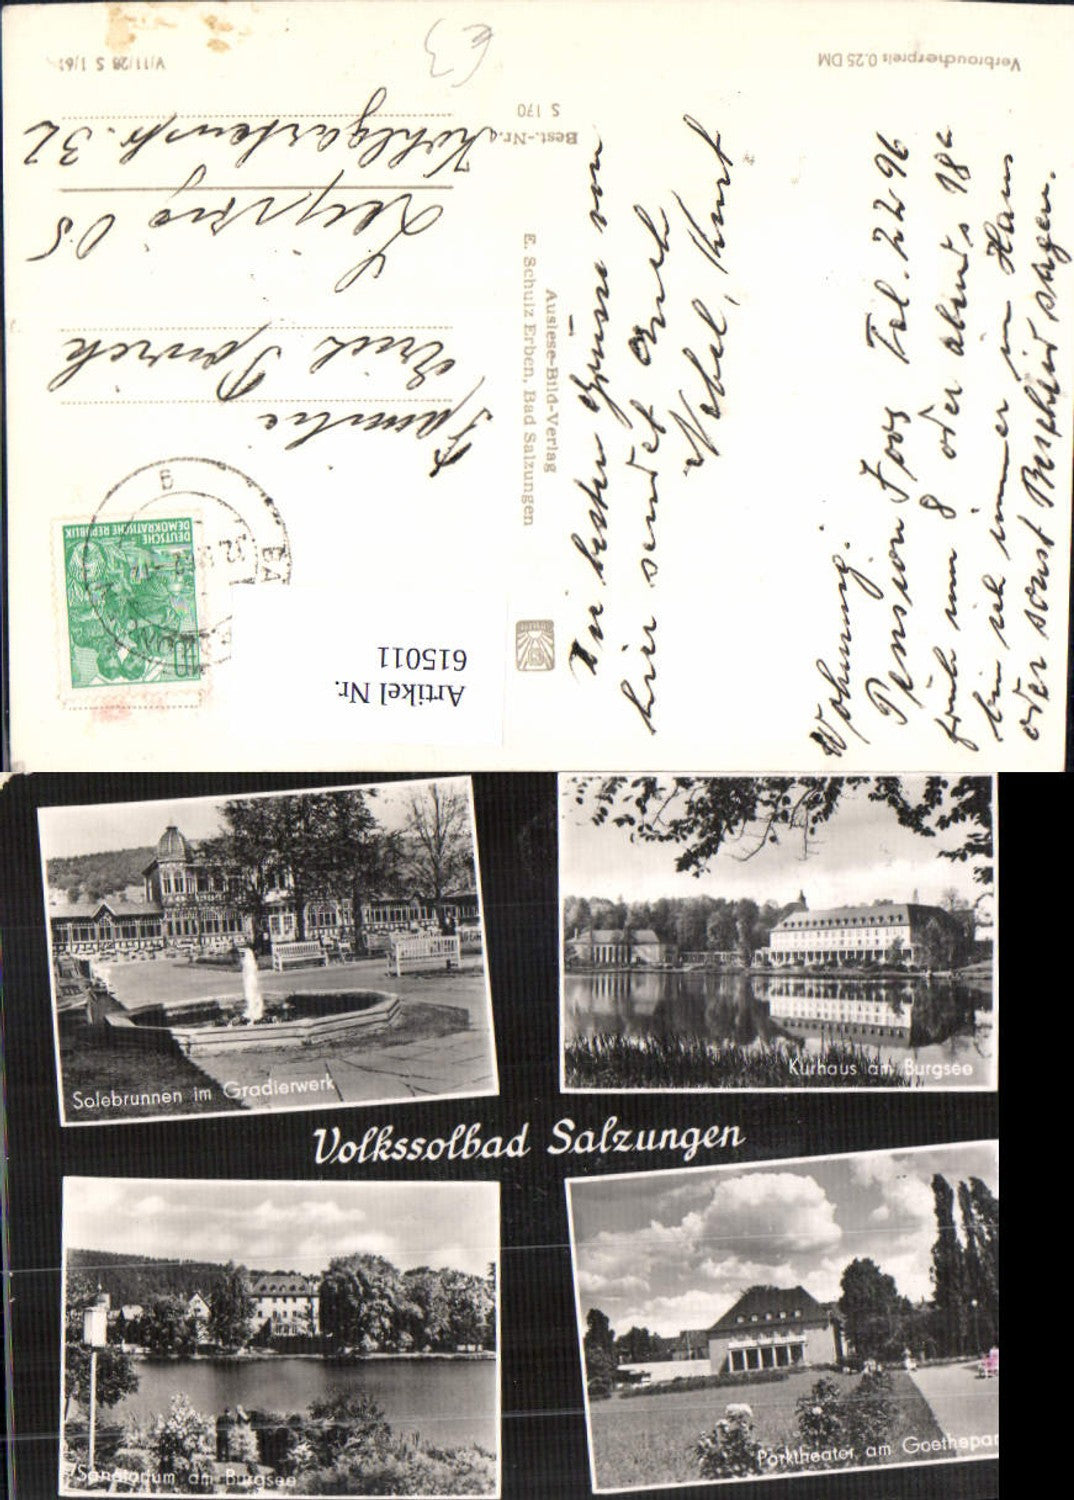 Verbraucherpreis 0.25 DM
V/11/28 S 1/61
Best.-Nr.
S 170
Auslese-Bild-Verlag
E. Schulz Erben, Bad Salzungen
Die besten Grüsse von
hier sendet Euch
Nebel, Kurt
Wohnung:
Pension Foos Tel. 2296
früh um 8 oder abends 18
bin ich immer im Haus
oder sonst Bescheid sagen.
DEUTSCHE
DEMOKRATISCHE REPUBLIK
10
Familie
Erich
Leipzig O5
Kohlgartenstr. 32
€3
Artikel Nr.
615011
Solebrunnen im Gradierwerk
Kurhaus am Burgsee
Volkssolbad Salzungen
Sanatorium am Burgsee
Parktheater am Goethepar